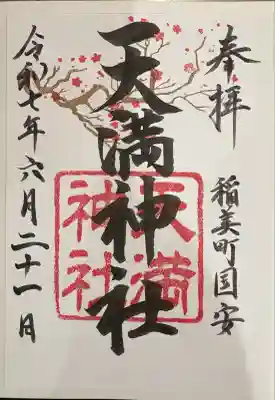 奉拝
稲美町国安
天満神社
天満
神社
令和七年六月二十一日